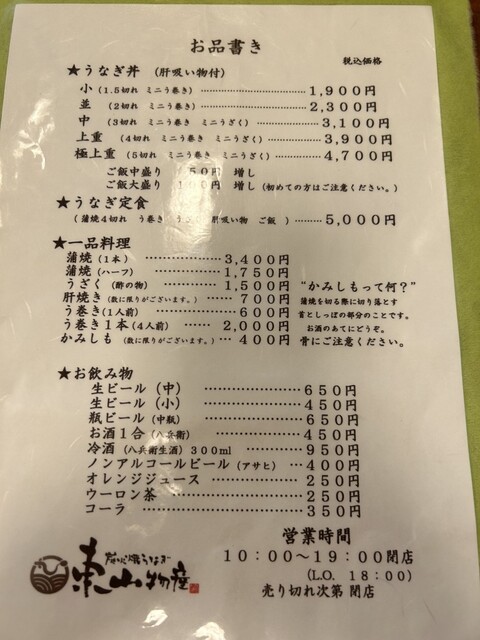 お品書き
税込価格
★うなぎ丼 (肝吸い物付)
小 (1.5切れ ミニう巻き) ………… 1,900円
並 (2切れ ミニう巻き) ………… 2,300円
中 (3切れ ミニう巻き ミニうざく) ……… 3,100円
上重 (4切れ ミニう巻き ミニうざく) ……… 3,900円
極上重 (5切れ ミニう巻き ミニうざく) ……… 4,700円
ご飯中盛り 50円 増し
ご飯大盛り 100円 増し (初めての方はご注意ください。)
★うなぎ定食
(蒲焼4切れ う巻き うざく 肝吸い物 ご飯 ) ……… 5,000円
★一品料理
蒲焼 (1本) ……………… 3,400円
蒲焼 (ハーフ) ……………… 1,750円
うざく (酢の物) ………… 1,500円 "かみしもって何?"
肝焼き (数に限りがございます。) ……… 700円 蒲焼を切る際に切り落とす
う巻き (1人前) ………… 600円 首としっぽの部分のことです。
う巻き1本 (4人前) …… 2,000円 お酒のあてにどうぞ。
かみしも (数に限りがございます。) … 400円 骨にご注意ください。
★お飲み物
生ビール (中) ……………… 650円
生ビール (小) ……………… 450円
瓶ビール (中瓶) ……………… 650円
お酒1合 (八兵衛) ……………… 450円
冷酒 (八兵衛生酒) 300ml ………… 950円
ノンアルコールビール (アサヒ) … 400円
オレンジジュース ……………… 250円
ウーロン茶 ……………… 250円
コーラ ……………… 350円
営業時間
10:00～19:00閉店
(L.O. 18:00)
売り切れ次第 閉店
東山物産